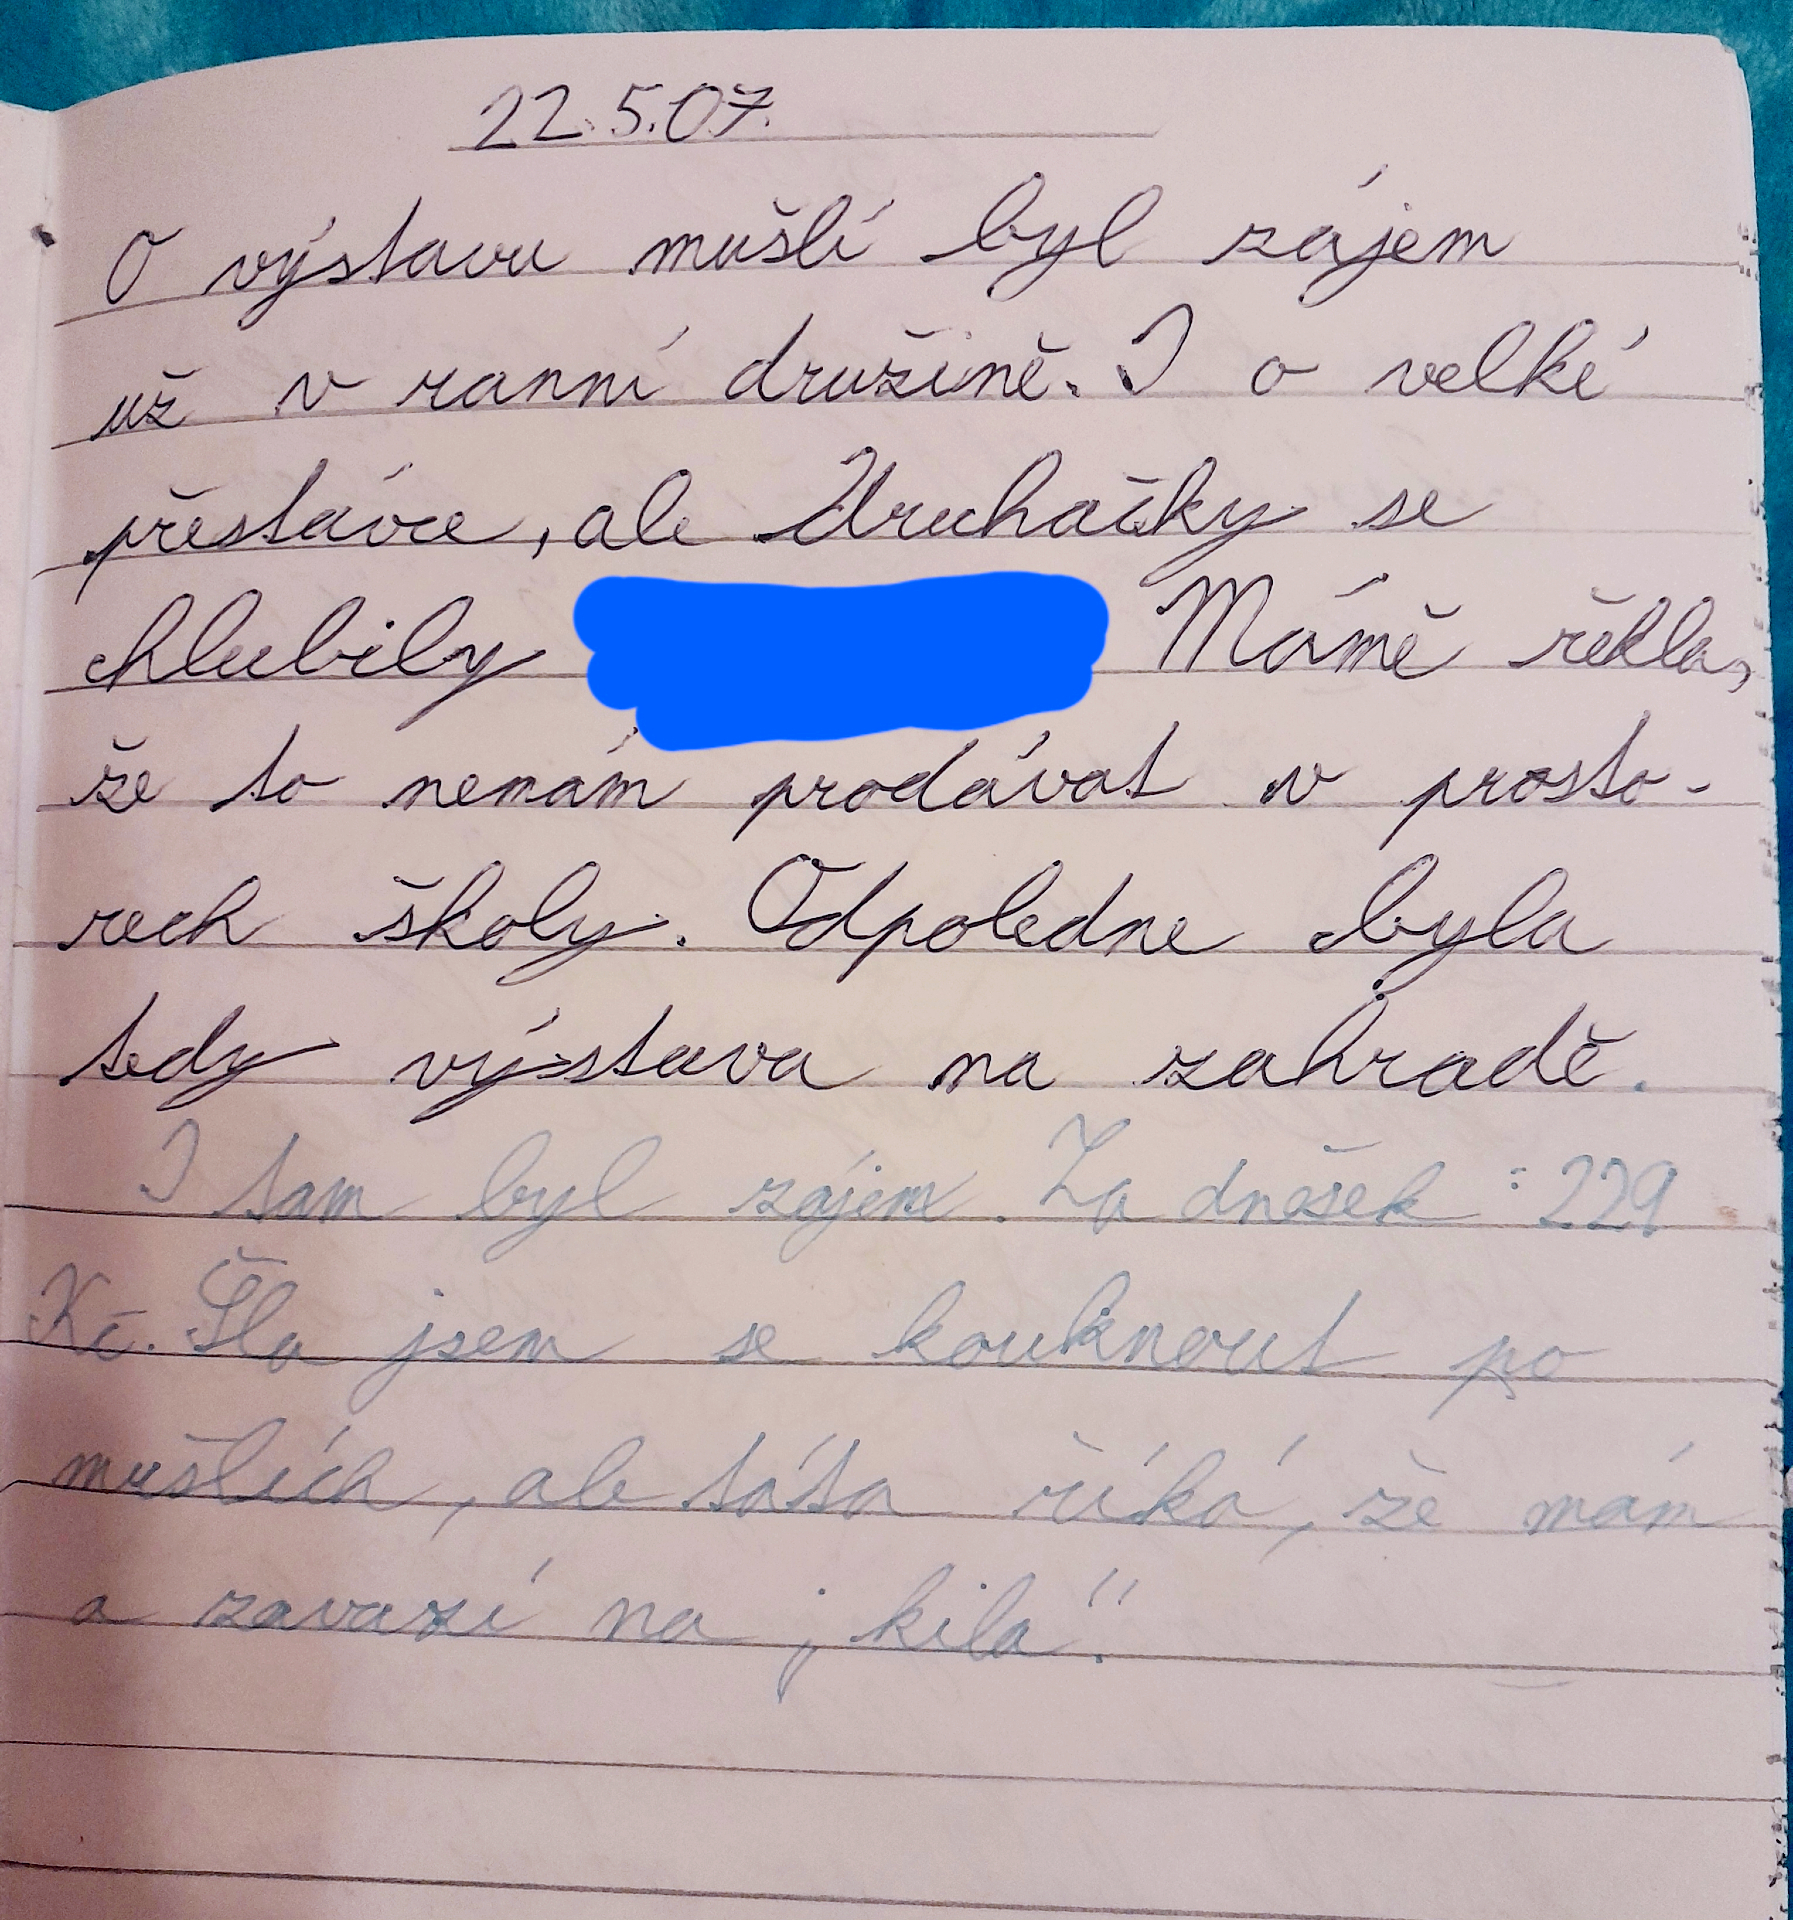 22.5.07.
O výstavu mušlí byl zájem
už v ranní družině. I o velké
přestávce, ale Druhačky se
chlubily Mámě řekla,
že to nemám prodávat v prosto-
rech školy. Odpoledne byla
tedy výstava na zahradě.
I tam byl zájem. Za dnešek : 229
Kč. Šla jsem se kouknout po
mušlích, ale táta říká, že mám
a zavazí na „kila".